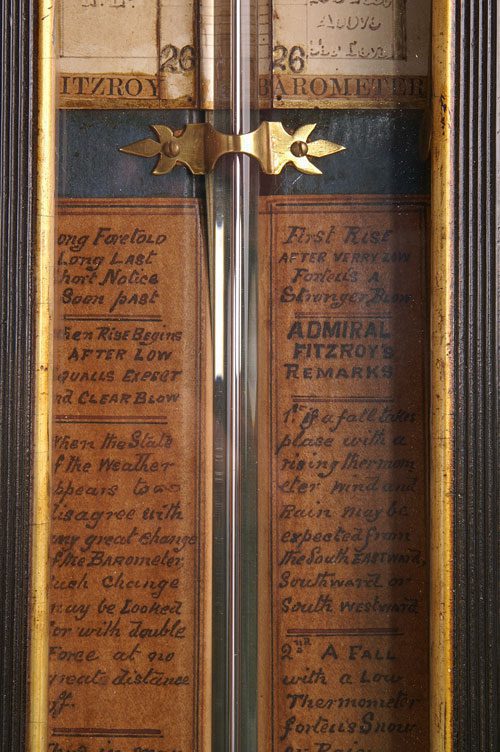 26
26
ABOVE
ITZROY BAROMETER
ong Foretold
Long Last
hort Notice
Soon past
hen Rise Begins
AFTER LOW
QUALLS EXPECT
nd CLEAR BLOW
When the State
f the Weather
ppears to
disagree with
any great Change
f the BAROMETER
Such Change
may be Looked
for with double
Force at no
great distance
off.
First Rise
AFTER VERRY LOW
Fortells A
Stronger Blow
ADMIRAL
FITZROY'S
REMARKS
1st if a fall takes
place with a
rising thermom
eter wind and
Rain may be
expected from
the South EASTWARD,
Southward or
South Westward
2nd A FALL
with a Low
Thermometer
fortells Snow